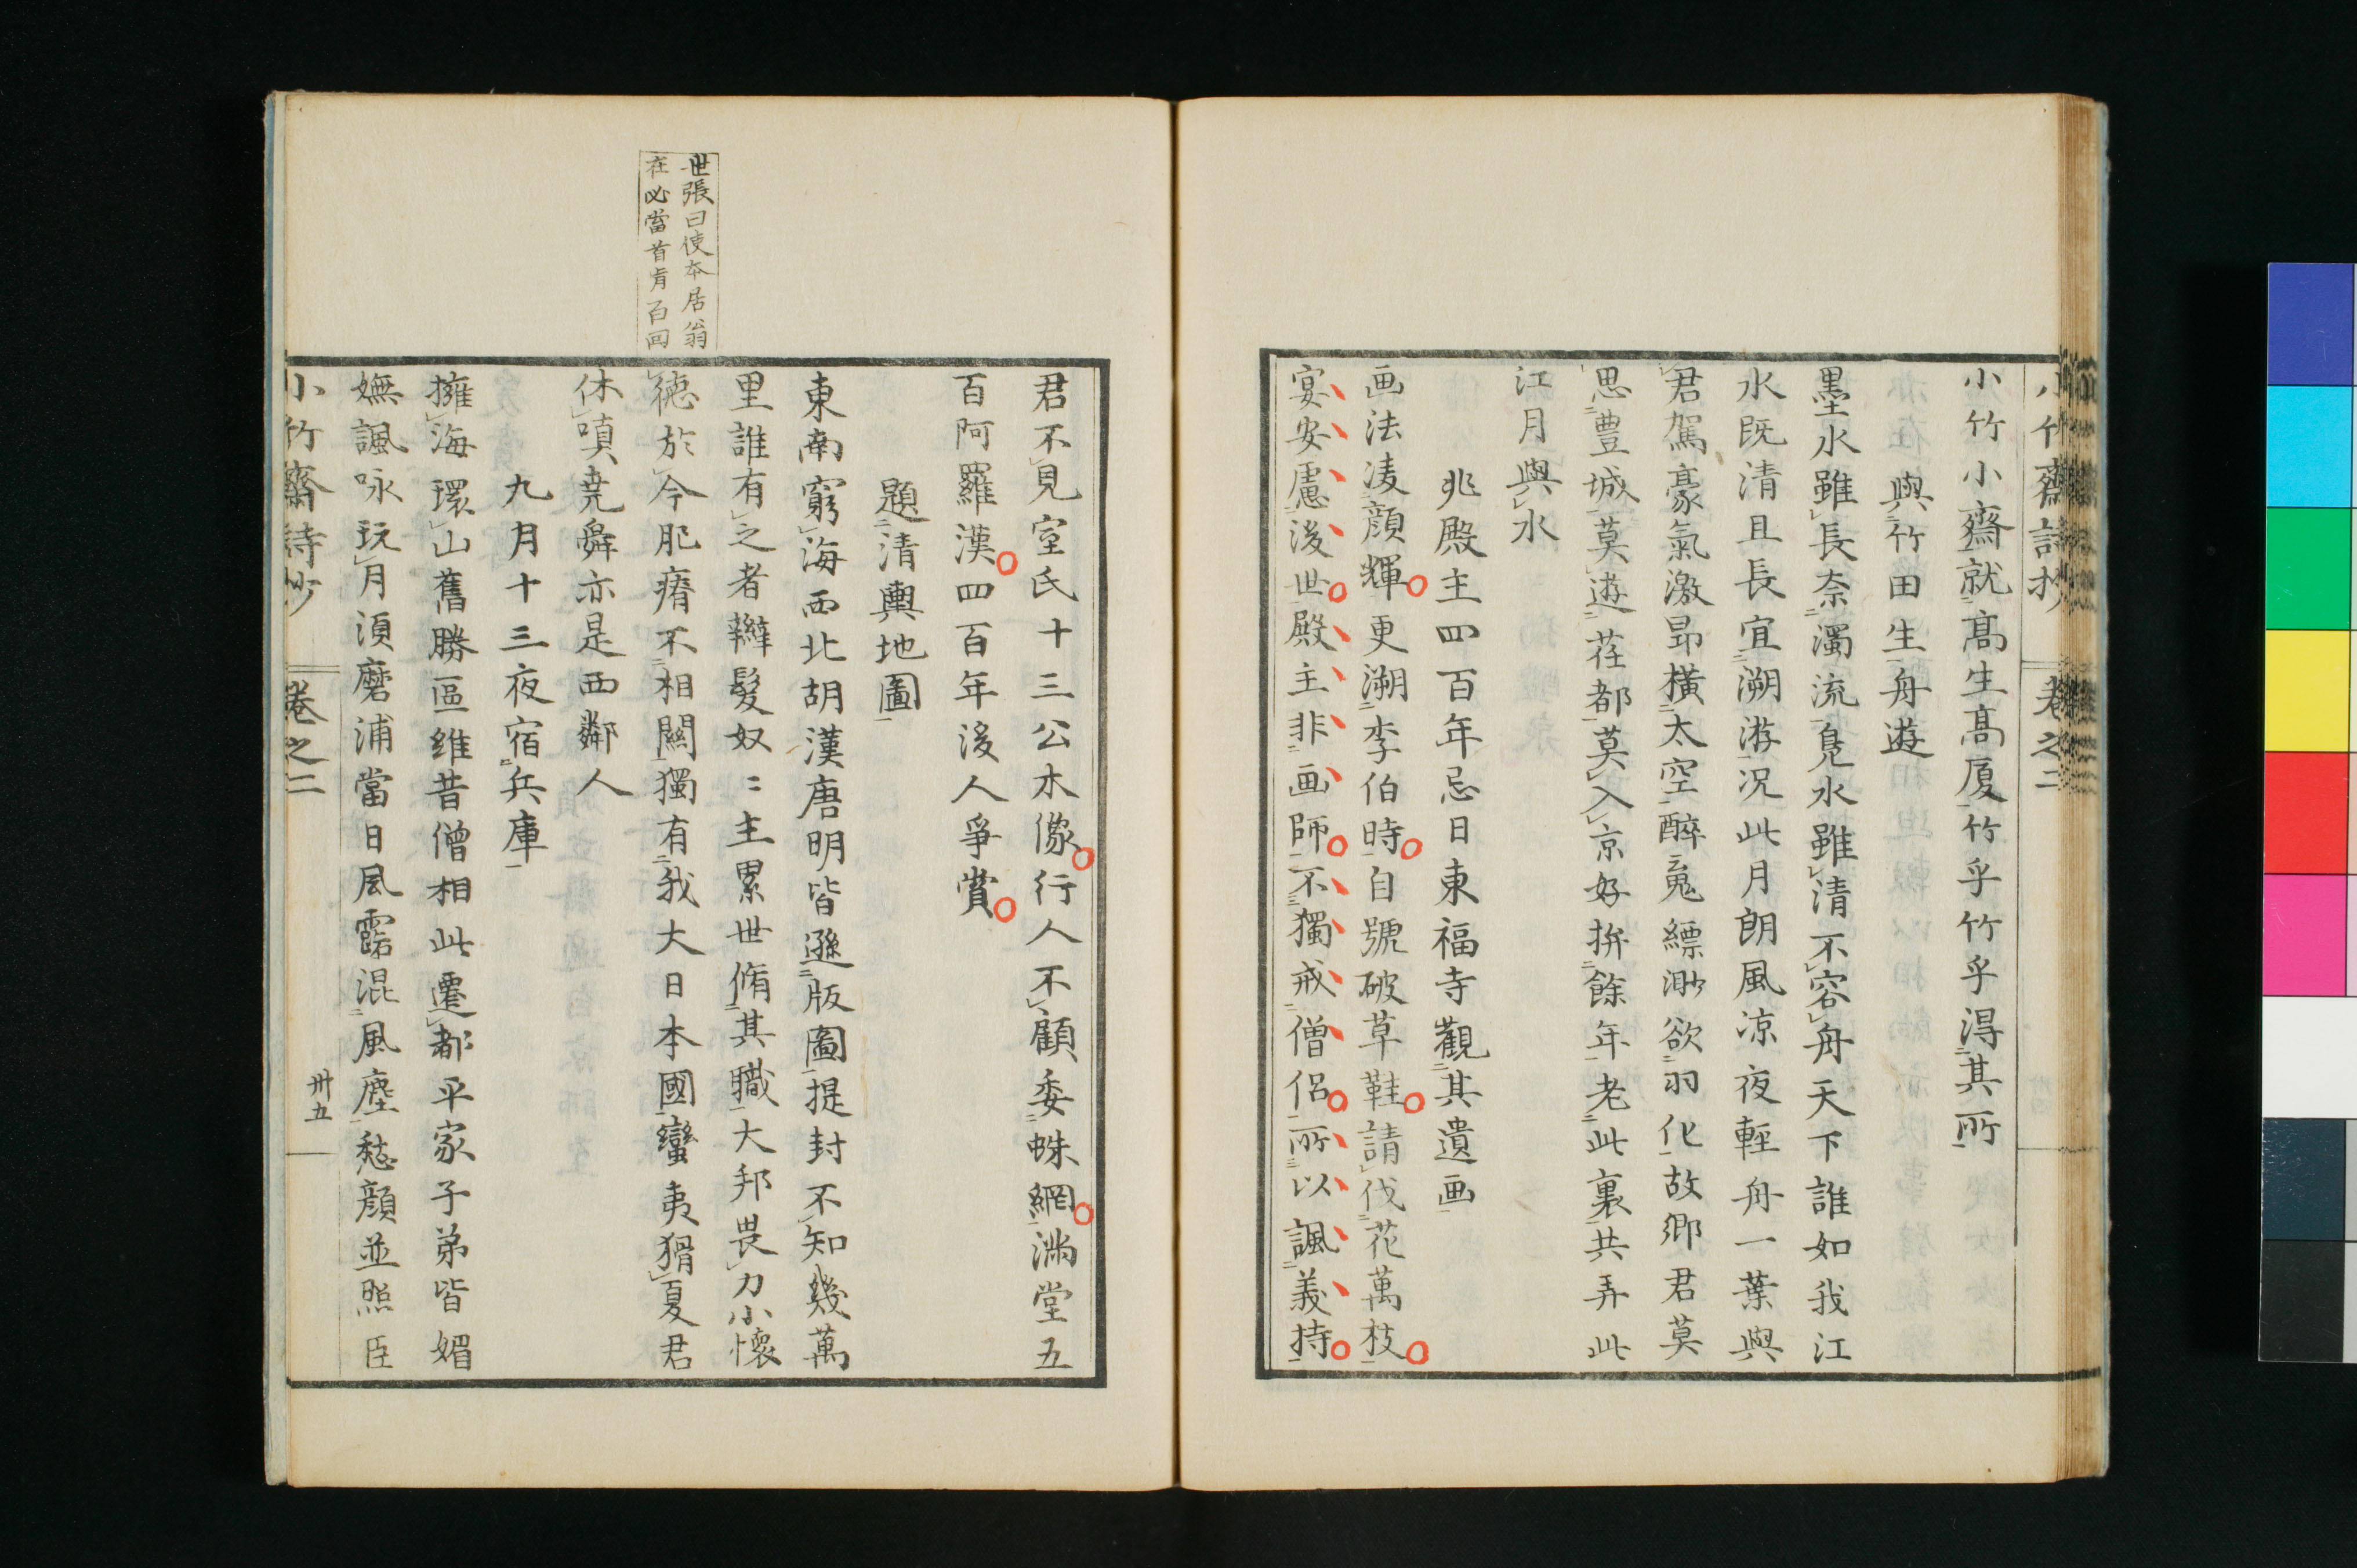 小竹齋詩抄 卷之二
小竹小齋就高生高厦竹乎竹乎得其所
與竹田生舟遊
墨水雖長奈濁流鳧水雖清不容舟天下誰如我江
水既清且長宜溯游况此月朗風凉夜輕舟一葉與
君駕豪氣激昻橫太空醉寬縹渺欲羽化故鄉君莫
思豐城莫遊荏都莫入京好拚餘年老此裏共弄此
江月與水
兆殿主四百年忌日東福寺觀其遺画
画法凌顔輝更溯李伯時自號破草鞋請伐花萬枝
宴安慮後世殿主非画師不獨戒僧侶所以諷義持
君不見室氏十三公木像行人不顧委蛛網滿堂五
百阿羅漢四百年後人爭賞
題清輿地圖
東南窮海西北胡漢唐明皆遜版圖提封不知幾萬
里誰有之者辮髮奴〻主累世脩其職大邦畏力小懷
世張曰使本居翁
在必當首肯百回
德於今肥瘠不相關獨有我大日本國蠻夷猾夏君
休嗔堯舜亦是西鄰人
九月十三夜宿兵庫
擁海環山舊勝區維昔僧相此遷都平家子弟皆媚
嫵諷咏玩月須磨浦當日風露混風塵愁顔並照臣
小竹齋詩抄 卷之二 卅五